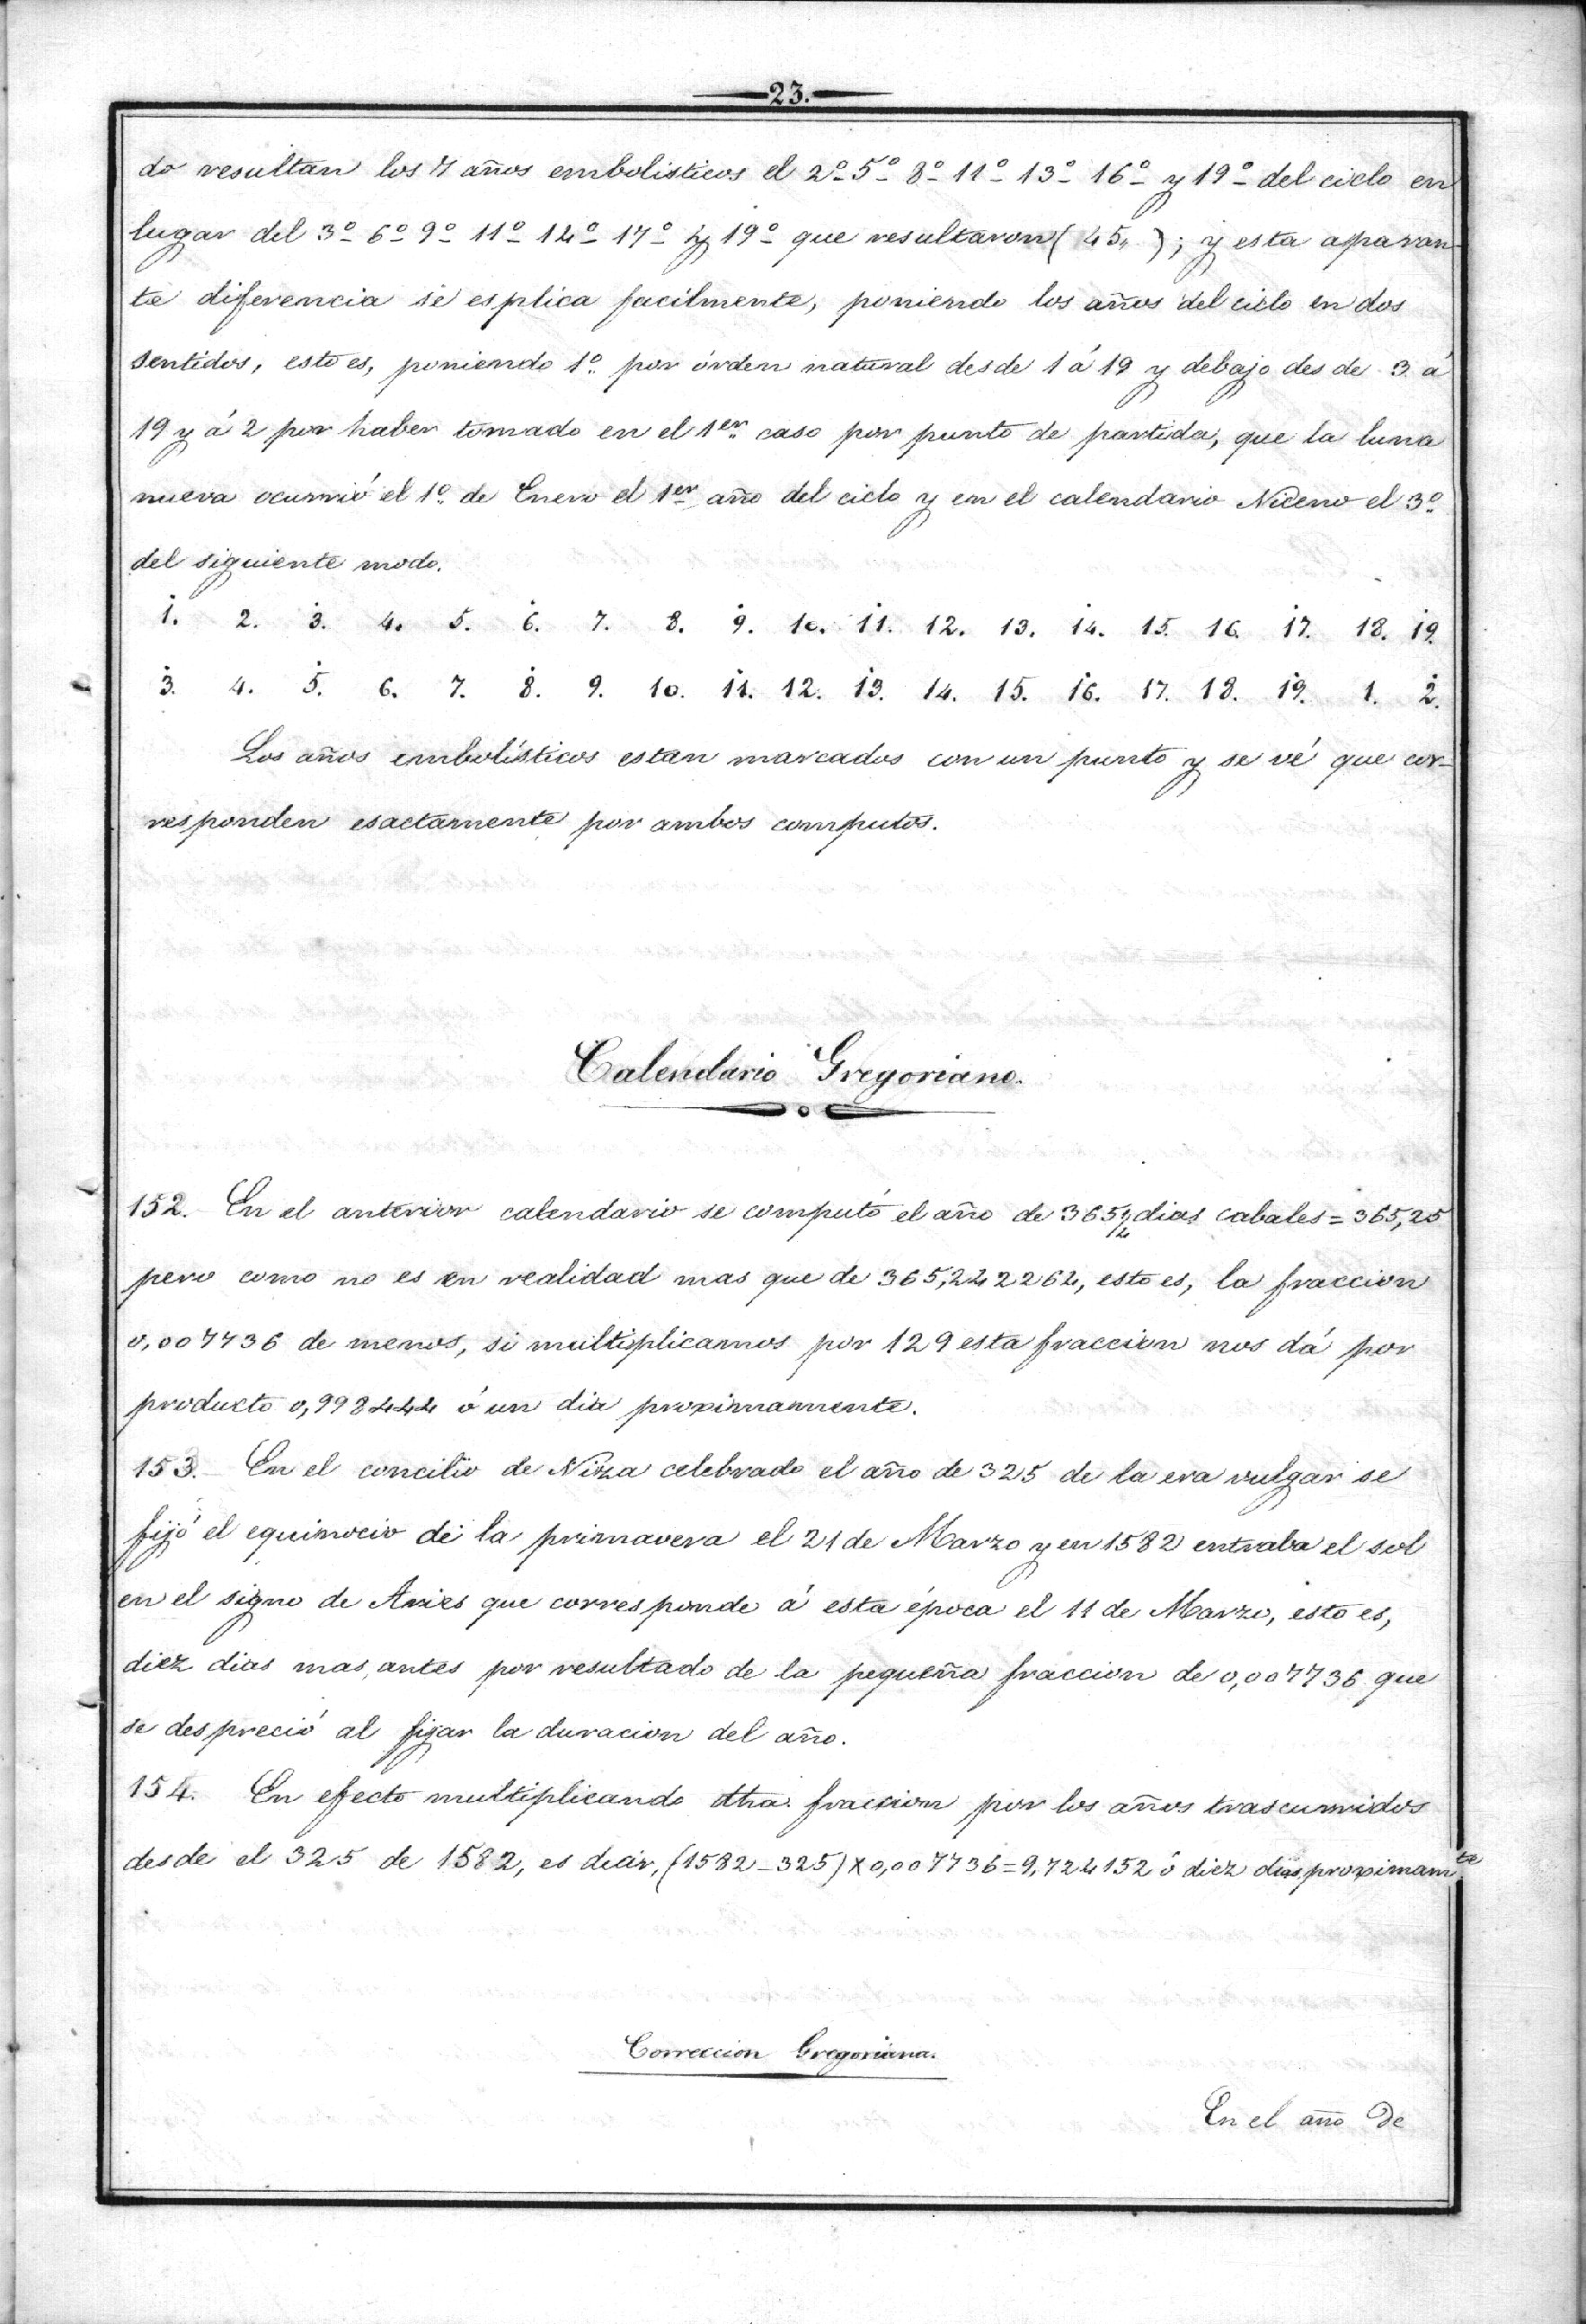 23.
do resultan los 7 años embolisticos el 2º 5º 8º 11º 13º 16º y 19º del ciclo en
lugar del 3º 6º 9º 11º 14º 17º y 19º que resultaron (45,,); y esta aparan-
te diferencia se esplica facilmente, poniendo los años del ciclo en dos
sentidos, esto es, poniendo 1º por órden natural desde 1 á 19 y debajo desde 3 á
19 y á 2 por haber tomado en el 1er caso por punto de partida, que la luna
nueva ocurrió el 1º de Enero el 1er año del ciclo y en el calendario Niceno el 3º
del siguiente modo.
1. 2. 3. 4. 5. 6. 7. 8. 9. 10. 11. 12. 13. 14. 15. 16. 17. 18. 19.
3. 4. 5. 6. 7. 8. 9. 10. 11. 12. 13. 14. 15. 16. 17. 18. 19. 1. 2.
Los años embolísticos estan marcados con un punto y se vé que cor-
responden esactamente por ambos computos.
Calendario Gregoriano.
152. En el anterior calendario se computó el año de 365 1/4 dias cabales = 365,25
pero como no es en realidad mas que de 365,242264, esto es, la fraccion
0,007736 de menos, si multiplicamos por 129 esta fraccion nos dá por
producto 0,998444 ó un dia proximamente.
153. En el concilio de Niza celebrado el año de 325 de la era vulgar se
fijó el equinocio de la primavera el 21 de Marzo y en 1582 entraba el sol
en el signo de Aries que corresponde á esta época el 11 de Marzo, esto es,
diez dias mas antes por resultado de la pequeña fraccion de 0,007736 que
se despreció al fijar la duracion del año.
154. En efecto multiplicando dha. fraccion por los años trascurridos
desde el 325 de 1582, es decir, (1582-325) x 0,007736 = 9,724152 ó diez dias proximamte
Correccion Gregoriana.
En el año de